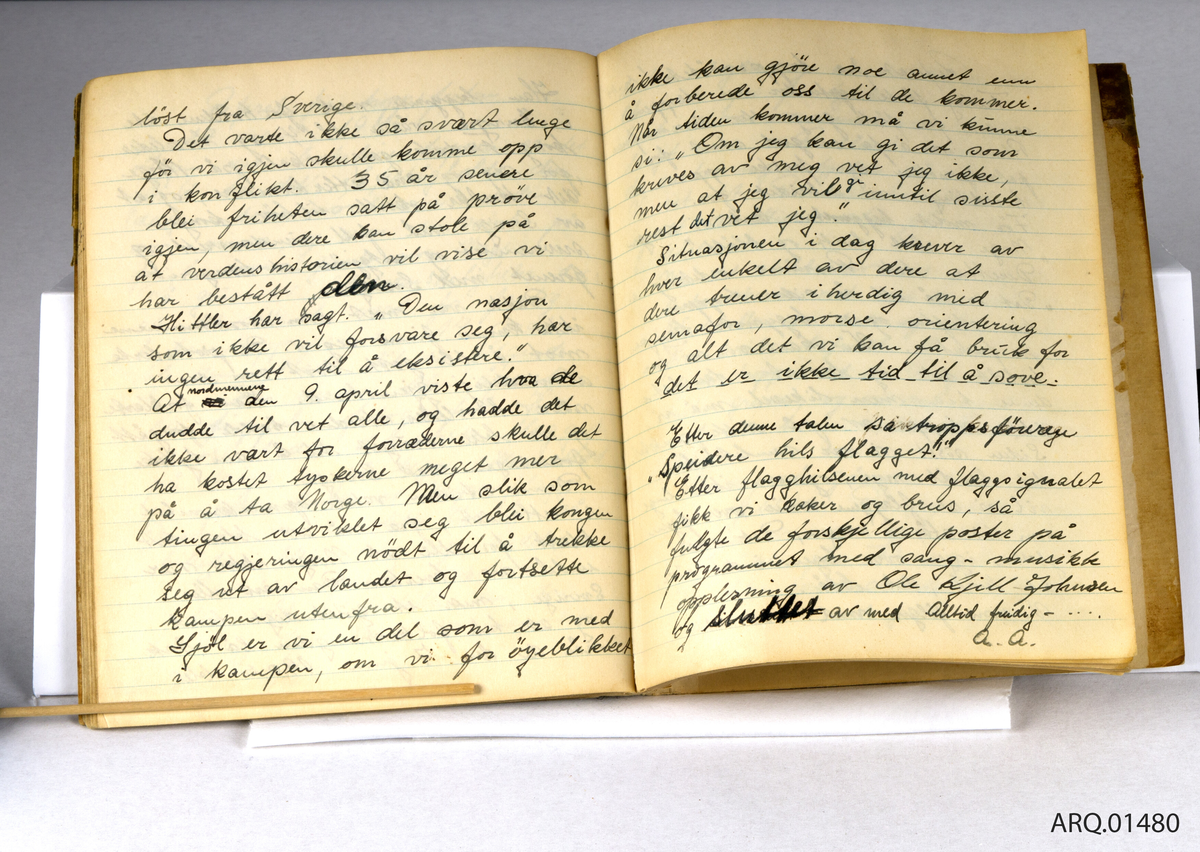 löst fra Sverige.
Det varte ikke så svært lenge
för vi igjen skulle komme opp
i konflikt. 35 år senere
blei friheten satt på pröve
igjen, men dere kan stole på
at verdenshistorien vil vise vi
har bestått den.
Hittler har sagt. „Den nasjon
som ikke vil forsvare seg, har
ingen rett til å eksistere."
At nordmennene den 9. april viste hva de
dudde til vet alle, og hadde det
ikke vært for forræderne skulle det
ha kostet tyskerne meget mer
på å ta Norge. Men slik som
tingen utviklet seg blei kongen
og regjeringen nödt til å trekke
seg ut av landet og fortsette
kampen utenfra.
Sjöl er vi en del som er med
i kampen, om vi for öyeblikket
ikke kan gjöre noe annet enn
å forberede oss til de kommer.
Når tiden kommer må vi kunne
si: „Om jeg kan gi det som
kreves av meg vet jeg ikke,
men at jeg vil inntil sisste
rest det vet jeg."
Situasjonen i dag krever av
hver enkelt av dere at
dere trener iherdig med
semafor, morse. orientering
og alt det vi kan få bruk for
det er ikke tid til å sove.
Etter denne talen sa troppsföreren
„Speidere hils flagget!"
Etter flagghilsenen med flaggsignalet
fikk vi kaker og brus, så
fulgte de forskjellige poster på
programmet med sang - musikk
opplesning av Ole Kjell Johnsen
og sluttet av med Alltid freidig - ....
A. A.
ARQ.01480